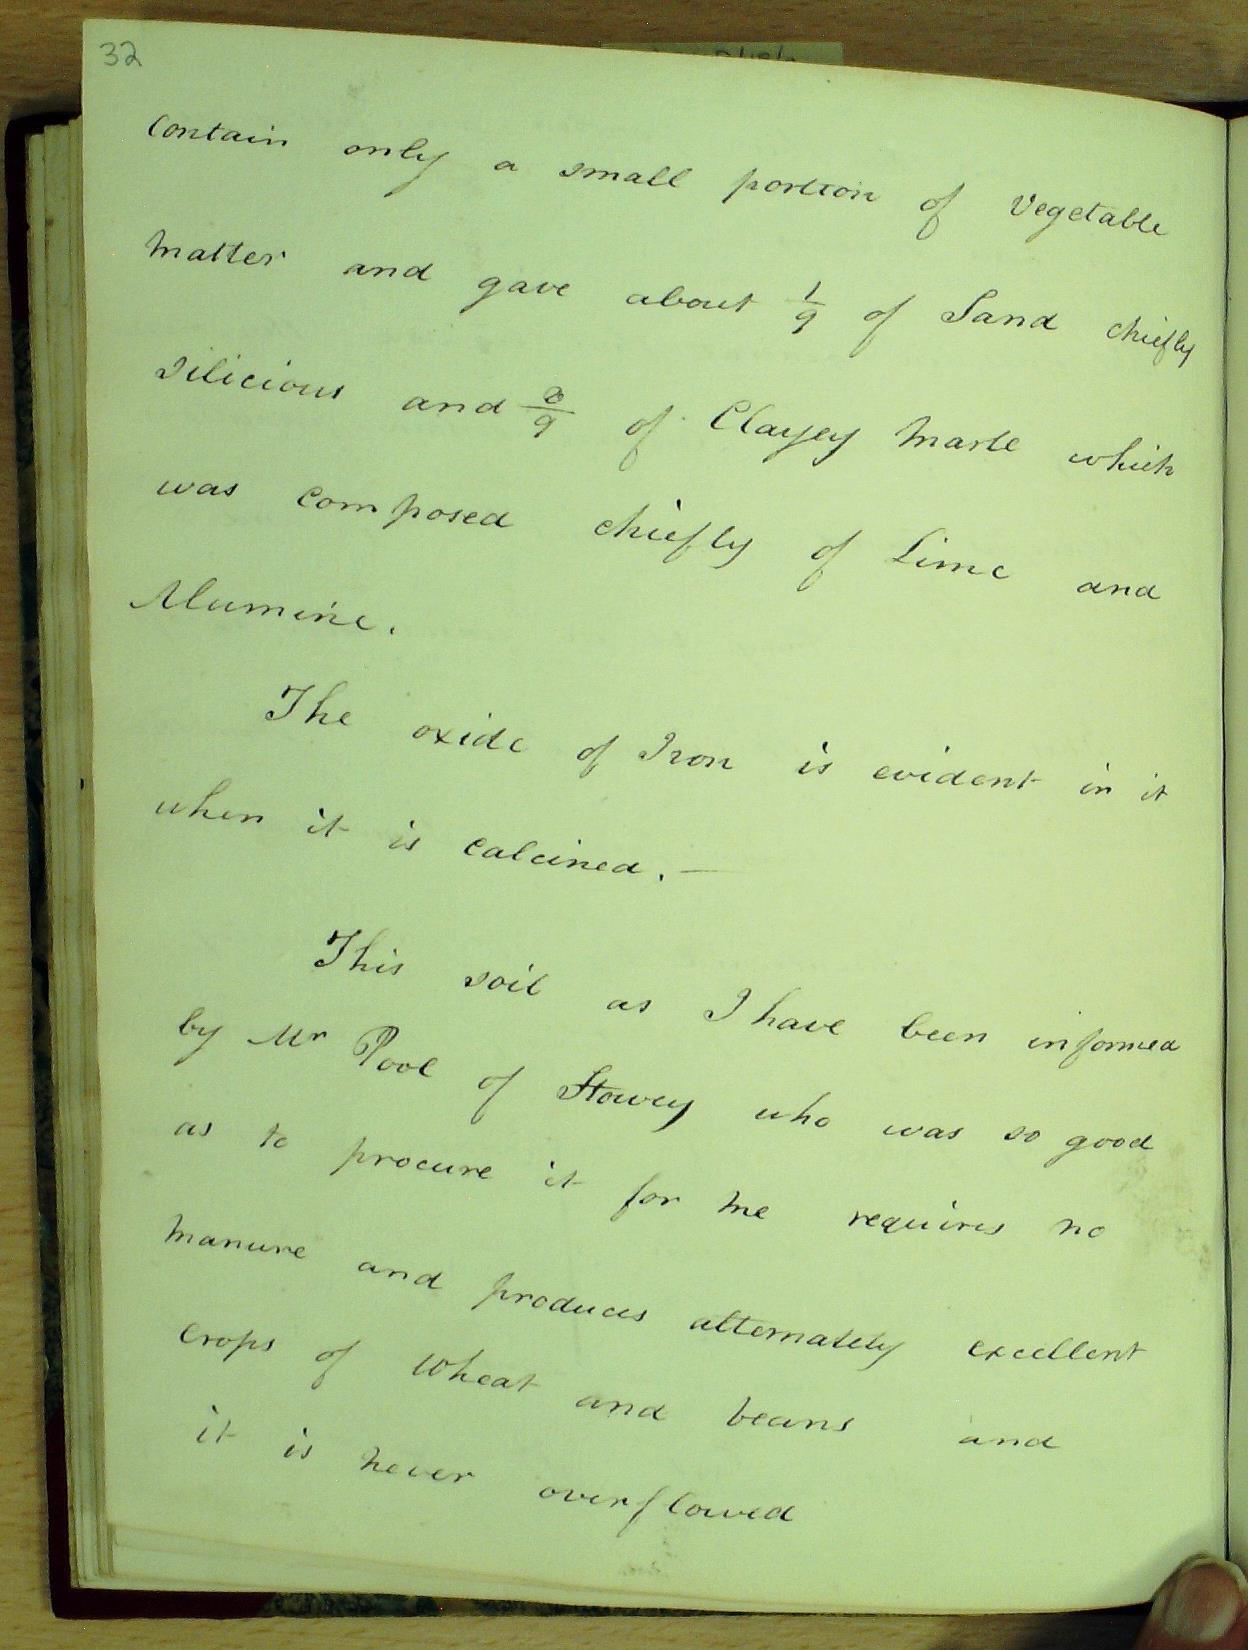 32
contain only a small portion of Vegetable
matter and gave about 1/9 of Sand chiefly
silicious and 8/9 of Clayey Marle which
was composed chiefly of Lime and
Alumine.
The oxide of Iron is evident in it
when it is calcined. —
This soil as I have been informed
by Mr Poole of Stowey who was so good
as to procure it for me requires no
manure and produces alternately excellent
crops of wheat and beans and
it is never overflowed